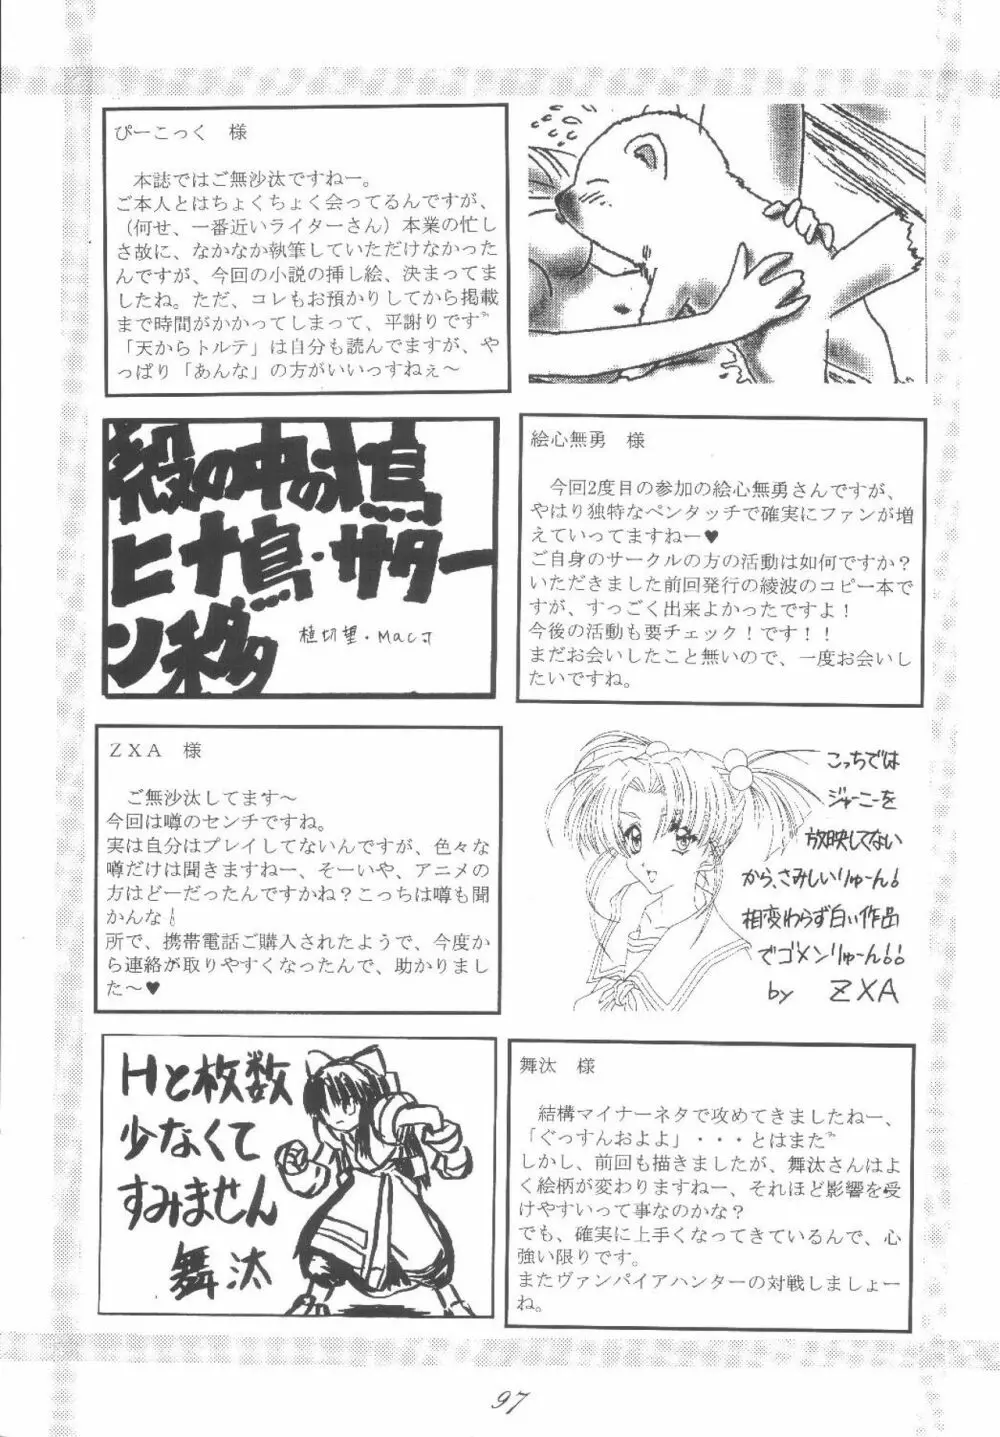 ぴーこっく　様
本誌ではご無沙汰ですねー。
ご本人とはちょくちょく会ってるんですが、
（何せ、一番近いライターさん）本業の忙し
さ故に、なかなか執筆していただけなかった
んですが、今回の小説の挿し絵、決まってま
したね。ただ、コレもお預かりしてから掲載
まで時間がかかってしまって、平謝りです
「天からトルテ」は自分も読んでますが、や
っぱり「あんな」の方がいいっすねぇ～
殻の中の鳥
ヒナ鳥・サター
ン移
植切望・Macﾖ
絵心無勇　様
今回2度目の参加の絵心無勇さんですが、
やはり独特なペンタッチで確実にファンが増
えていってますねー♥
ご自身のサークルの方の活動は如何ですか？
いただきました前回発行の綾波のコピー本で
すが、すっごく出来よかったですよ！
今後の活動も要チェック！です！！
まだお会いしたこと無いので、一度お会いし
たいですね。
ＺＸＡ　様
ご無沙汰してます～
今回は噂のセンチですね。
実は自分はプレイしてないんですが、色々な
噂だけは聞きますねー、そーいや、アニメの
方はどーだったんですかね？こっちは噂も聞
かんな
所で、携帯電話ご購入されたようで、今度か
ら連絡が取りやすくなったんで、助かりまし
た～♥
こっちでは
ジャーニーを
放映してない
から、さみしいりゅーん！
相変わらず白い作品
でゴメンりゅーん！！
by ZXA
Hと枚数
少なくて
すみません
舞汰
舞汰　様
結構マイナーネタで攻めてきましたねー、
「ぐっすんおよよ」・・・とはまた
しかし、前回も描きましたが、舞汰さんはよ
く絵柄が変わりますねー、それほど影響を受
けやすいって事なのかな？
でも、確実に上手くなってきているんで、心
強い限りです。
またヴァンパイアハンターの対戦しましょー
ね。
97